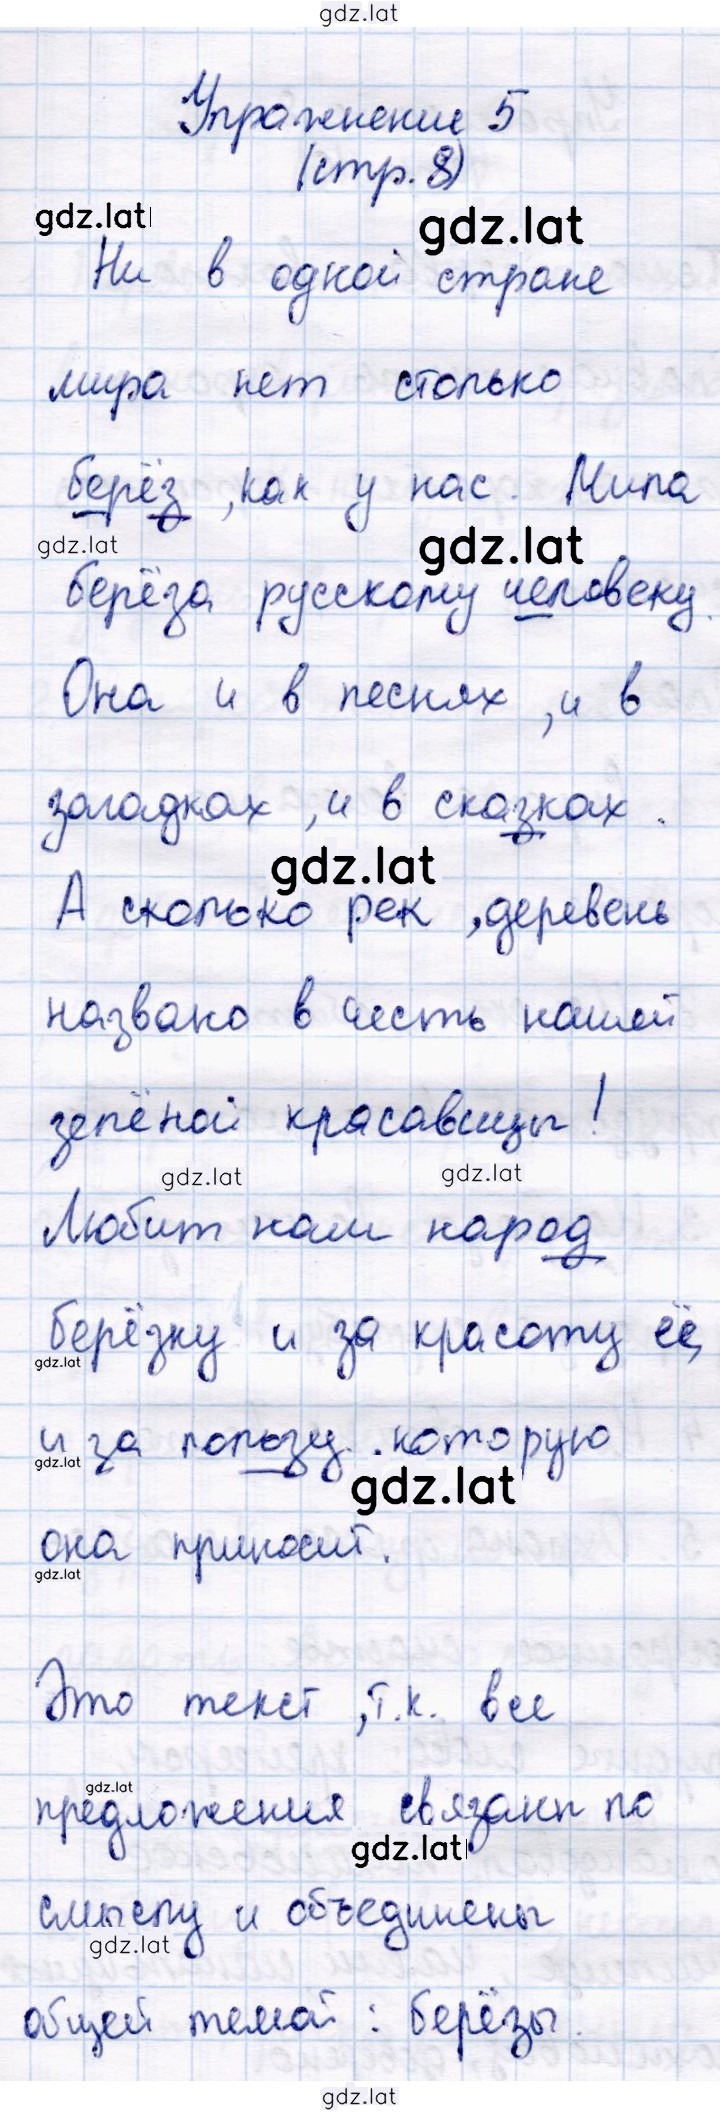 gdz.lat
Упражнение 5
(стр. 8)
gdz.lat gdz.lat
Ни в одной стране
мира нет столько
берёз, как у нас. Мила
gdz.lat gdz.lat
берёза русскому человеку.
Она и в песнях, и в
загадках, и в сказках.
gdz.lat
А сколько рек, деревень
названо в честь нашей
зелёной красавицы!
gdz.lat gdz.lat
Любит наш народ
берёзку и за красоту её,
gdz.lat
и за пользу, которую
gdz.lat gdz.lat
она приносит.
gdz.lat
Это текст, т.к. все
gdz.lat
предложения связаны по
gdz.lat
смыслу и объединены
gdz.lat
общей темой: берёзы.
gdz.lat